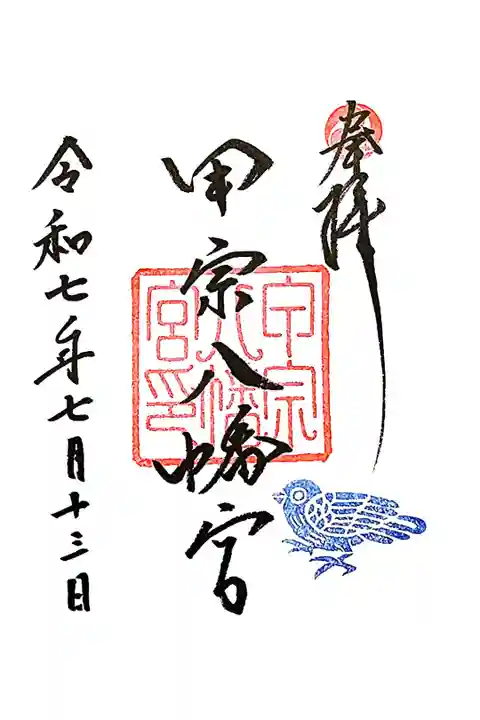 奉拝
甲宗八幡宮
甲宗八幡宮印
令和七年七月十三日